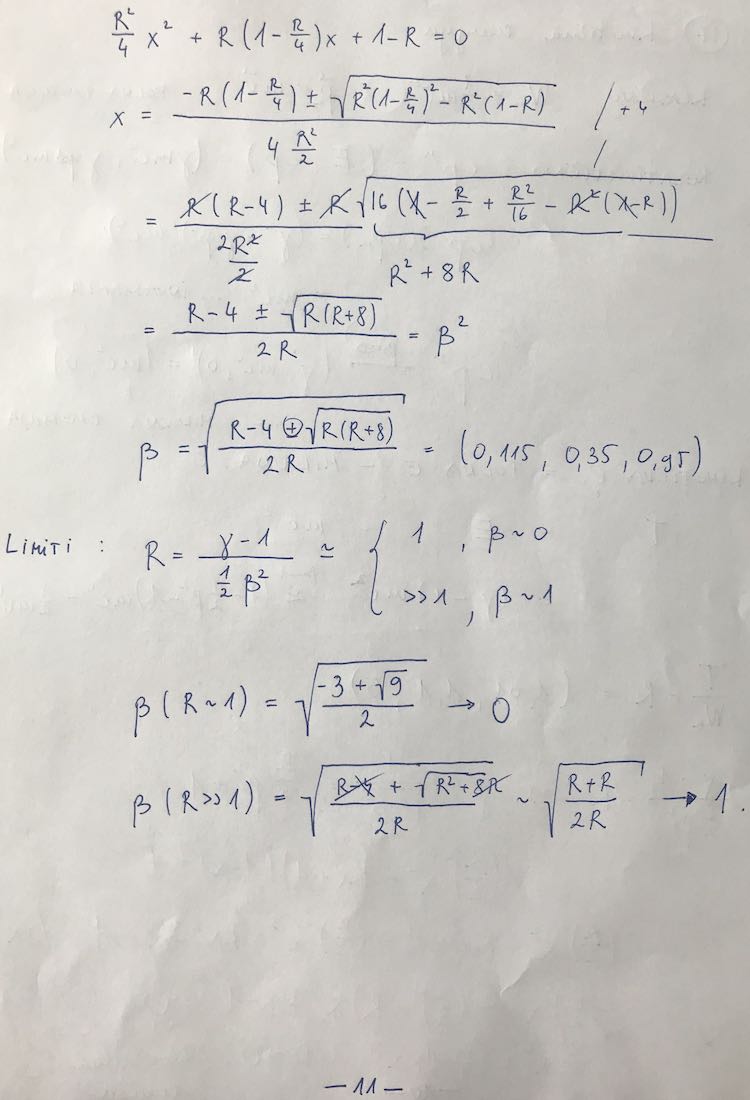 R²/4 x² + R(1-R/4)x + 1-R = 0
x = (-R(1-R/4) ± √(R²(1-R/4)² - R²(1-R))) / (4 R²/2) / +4 /
= (R(R-4) ± R√(16(1 - R/2 + R²/16 - R²(1-R)))) / (2R²/2)
R² + 8R
= (R-4 ± √(R(R+8))) / 2R = β²
β = √((R-4 ⊕ √(R(R+8))) / 2R) = (0,115, 0,35, 0,95)
LIMITI : R = (γ-1) / (½ β²) ≃ { 1 , β~0
>>1 , β~1
β(R~1) = √((-3+√9) / 2) → 0
β(R>>1) = √((R-4 + √(R²+8R)) / 2R) ~ √((R+R) / 2R) → 1.
-11-